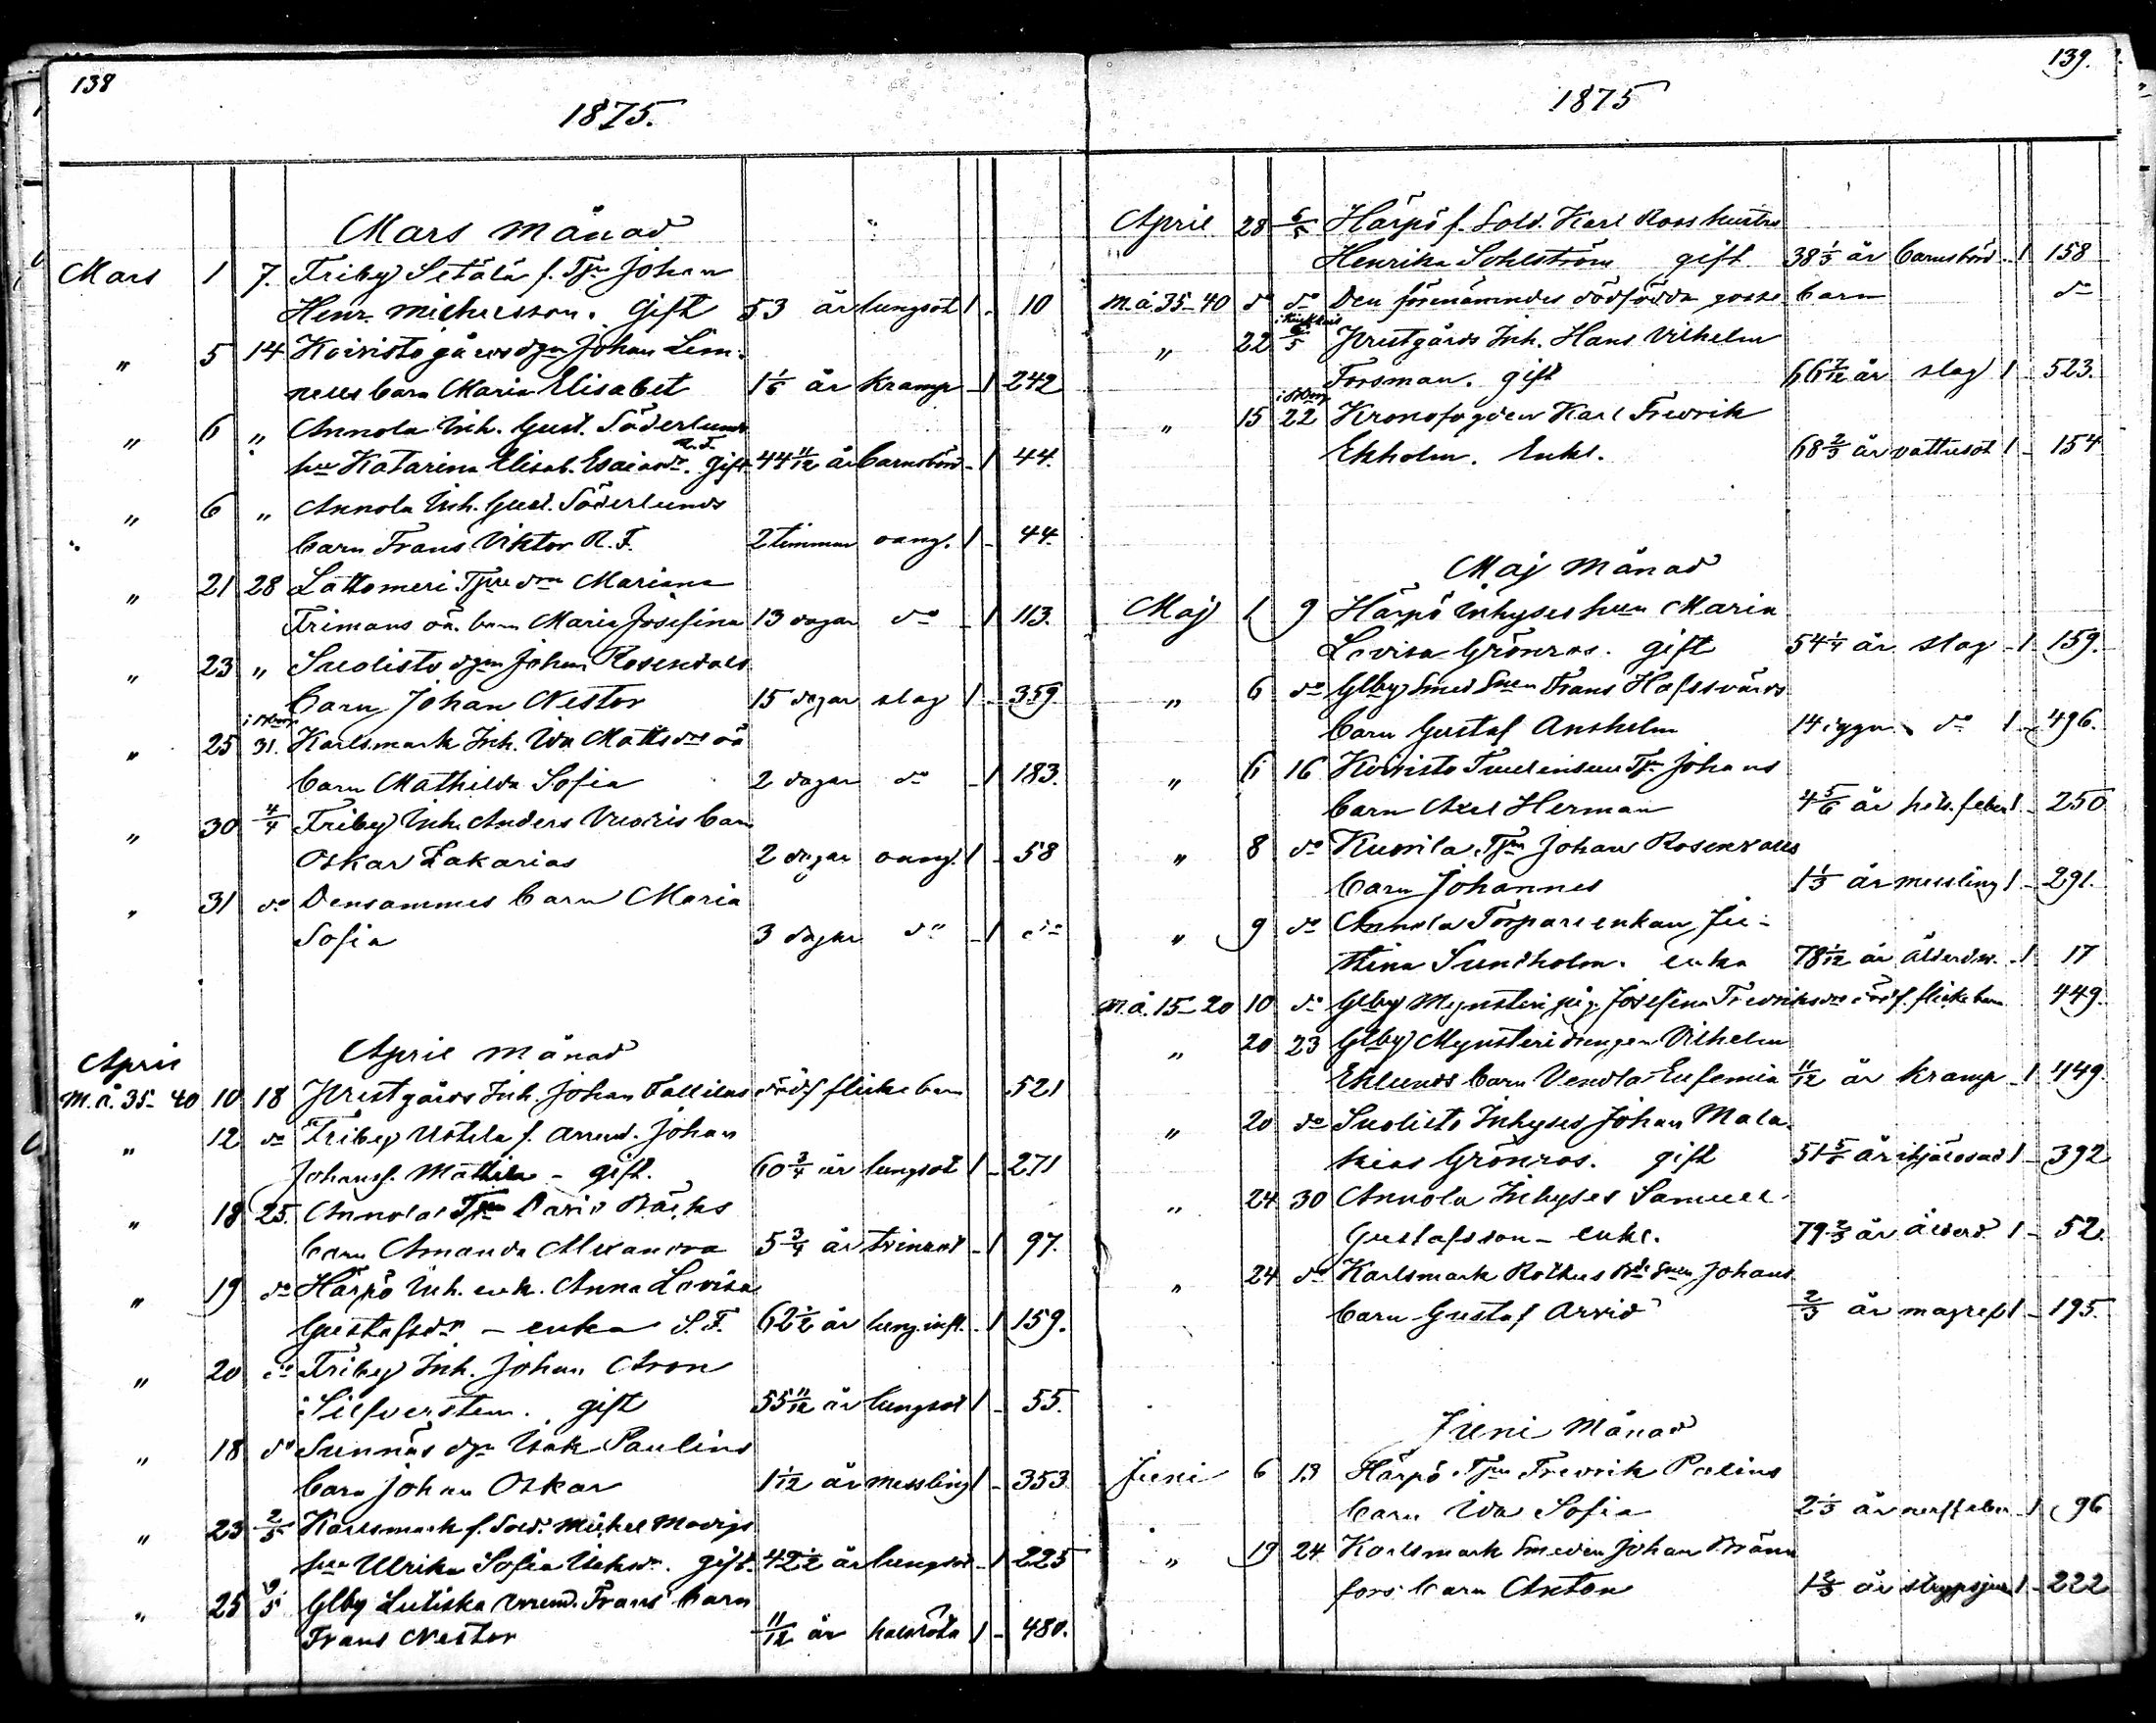 138
1875.
Mars månad
Mars 1 7. Friby Setälä f. Tjn Johan
Henr. Michelsson. Gift 53 år lungsot 1 10
" 5 14 Koivisto gårds dgn Johan Lim-
nells barn Maria Elisabet 1 1/6 år kramp 1 242
" 6 " Annola Inh. Gust. Söderlunds
hu Katarina Elisab. Esaiasdr. R.F. Gift 44 11/12 år barnsbörd 1 44.
" 6 " Annola Inh. Gust. Söderlunds
barn Frans Viktor R.F. 2 timmar oang. 1 44.
" 21 28 Lattomeri Tjne dra Mariana
Frimans oä. barn Maria Josefina 13 dagar do 1 113.
" 23 " Suolisto dgn Johan Rosendals
barn Johan Nestor 15 dagar slag 1 359.
" 25 31. Karlsmark Inh. Ida Mattsdrs oä
barn Mathilda Sofia 2 dagar do 1 183.
" 30 4/4 Friby Inh. Anders Vuoris barn
Oskar Zakarias 2 dagar oang. 1 58
" 31 do Densammes barn Maria
Sofia 3 dagar do 1 do
April månad
April
M.å. 35-40 10 18 Prestgårds Inh. Johan Tallilas dödf flicke barn 521
" 12 do Friby Uotila f. arrend. Johan
Johansf. Mattila - gift. 60 3/4 år lungsot 1 271
" 18 25. Annola Tjn David Bäcks
barn Amanda Alexandra 5 3/4 år trinsot 1 97.
" 19 do Härpö Inh. enk. Anna Lovisa
Gustafsdr - enka S.F. 62 1/2 år lung.infl. 1 159.
" 20 do Friby Inh. Johan Aron
Silfversten. gift 55 11/12 år lungsot 1 55.
" 18 do Sunnäs dgn Isak Paulins
barn Johan Oskar 1 1/12 år messling 1 353
" 23 2/5 Karlsmark f. Sold. Michel Modigs
hu Ulrika Sofia Isaksdr. gift. 42 1/2 år lungsot 1 225
" 25 9/5 Glby Lutiska arrend. Frans barn
Frans Nestor 11/12 år halsröta 1 480.
139.
1875
April 28 6/5 Härpö f. Sold. Karl Roos hustru
Henrika Sohlström gift. 38 1/3 år barnsbörd 1 158
M.å. 35-40 do do Den förenämndes dödfödda gosse barn do
" 22 6/5 Prestgårds Inh. Hans Vilhelm
Forsman. gift 66 7/12 år slag 1 523.
" 15 22 Kronofogden Karl Fredrik
Ekholm. Enkl. 68 2/3 år vattusot 1 154
Maj Månad
Maj 1 9 Härpö Inhyseshun Maria
Lovisa Grönros. gift 54 1/4 år slag 1 159.
" 6 do Glby Smed Snen Frans Hafssvärds
barn Gustaf Anshelm 14 dygn do 1 496.
" 6 16 Koivisto Tjn Johans
barn Axel Herman 4 5/6 år feber 1 250
" 8 do Kuorila Tjn Johan Rosendals
barn Johannes 1 1/3 år messling 1 291.
" 9 do Annola Torpare enkan Ju-
stina Sundholm. enka 78 1/12 år ålderdom. 1 17
M.å. 15-20 10 do Glby Mynsteri pig. Josefina Fredriksdrs dödf. flicke barn 449.
" 20 23 Glby Mynsteri drängen Vilhelm
Eklunds barn Vendla Eufemia 11/12 år kramp 1 449.
" 20 do Suolisto Inhyses Johan Mala-
kias Grönros. gift 51 5/6 år ihjälosad 1 392
" 24 30 Annola Inhyses Samuel
Gustafsson - enkl. 79 2/3 år ålderd. 1 52.
" 24 do Karlsmark Rothus Johans
barn Gustaf Arvid 2/3 år magref 1 195.
Juni Månad
Juni 6 13 Härpö Tjn Fredrik Palins
barn Ida Sofia 2 1/3 år nerffeber 1 96
" 19 24 Karlsmark Smeden Johan Bränn
fors barn Anton 1 2/3 år strypsjuk 1 222